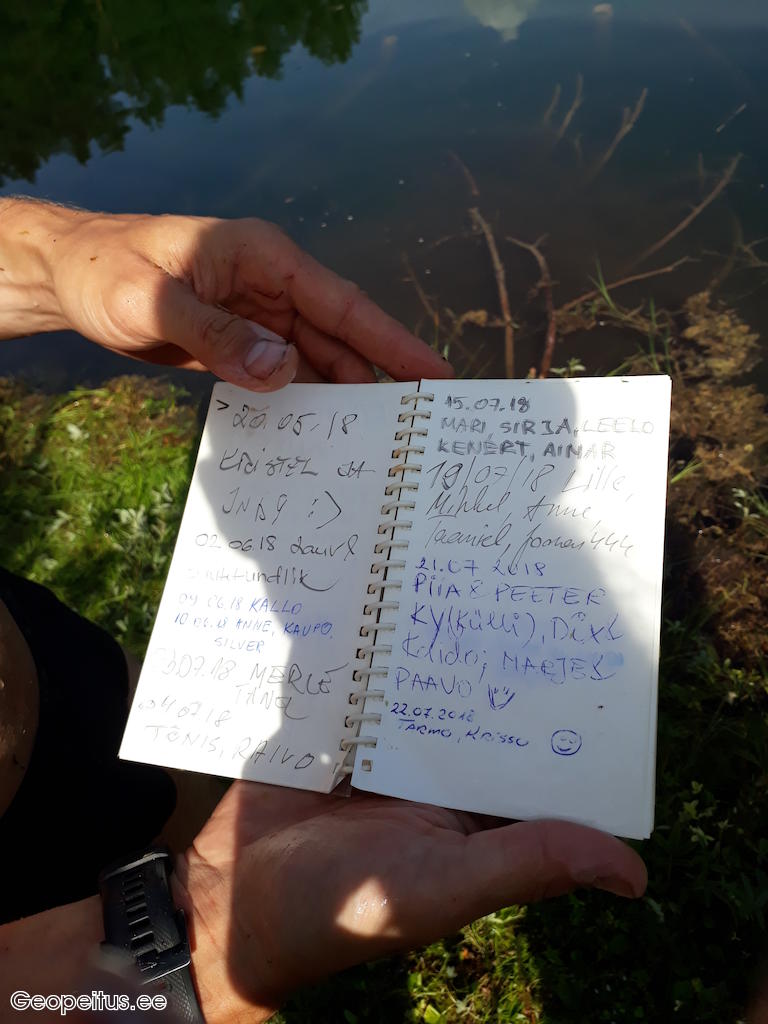 > 20.05.18
KRISTEL JA
:)
02.06.18 Lauri
09.06.18 KALLO
10.06.18 ANNE, KAUPO,
SILVER
07.18 MERLE
TANEL
04.07.18
TÕNIS, RAIVO
15.07.18
MARI, SIRJA, LEELO
KENERT, AINAR
19/07/18 Lille,
Mihkel, Anne,
Taaniel,
21.07 2018
PIIA & PEETER
KY(Külli),
Kaido, MARJE
PAAVO
22.07.2018
TARMO, KRISSU
Geopeitus.ee